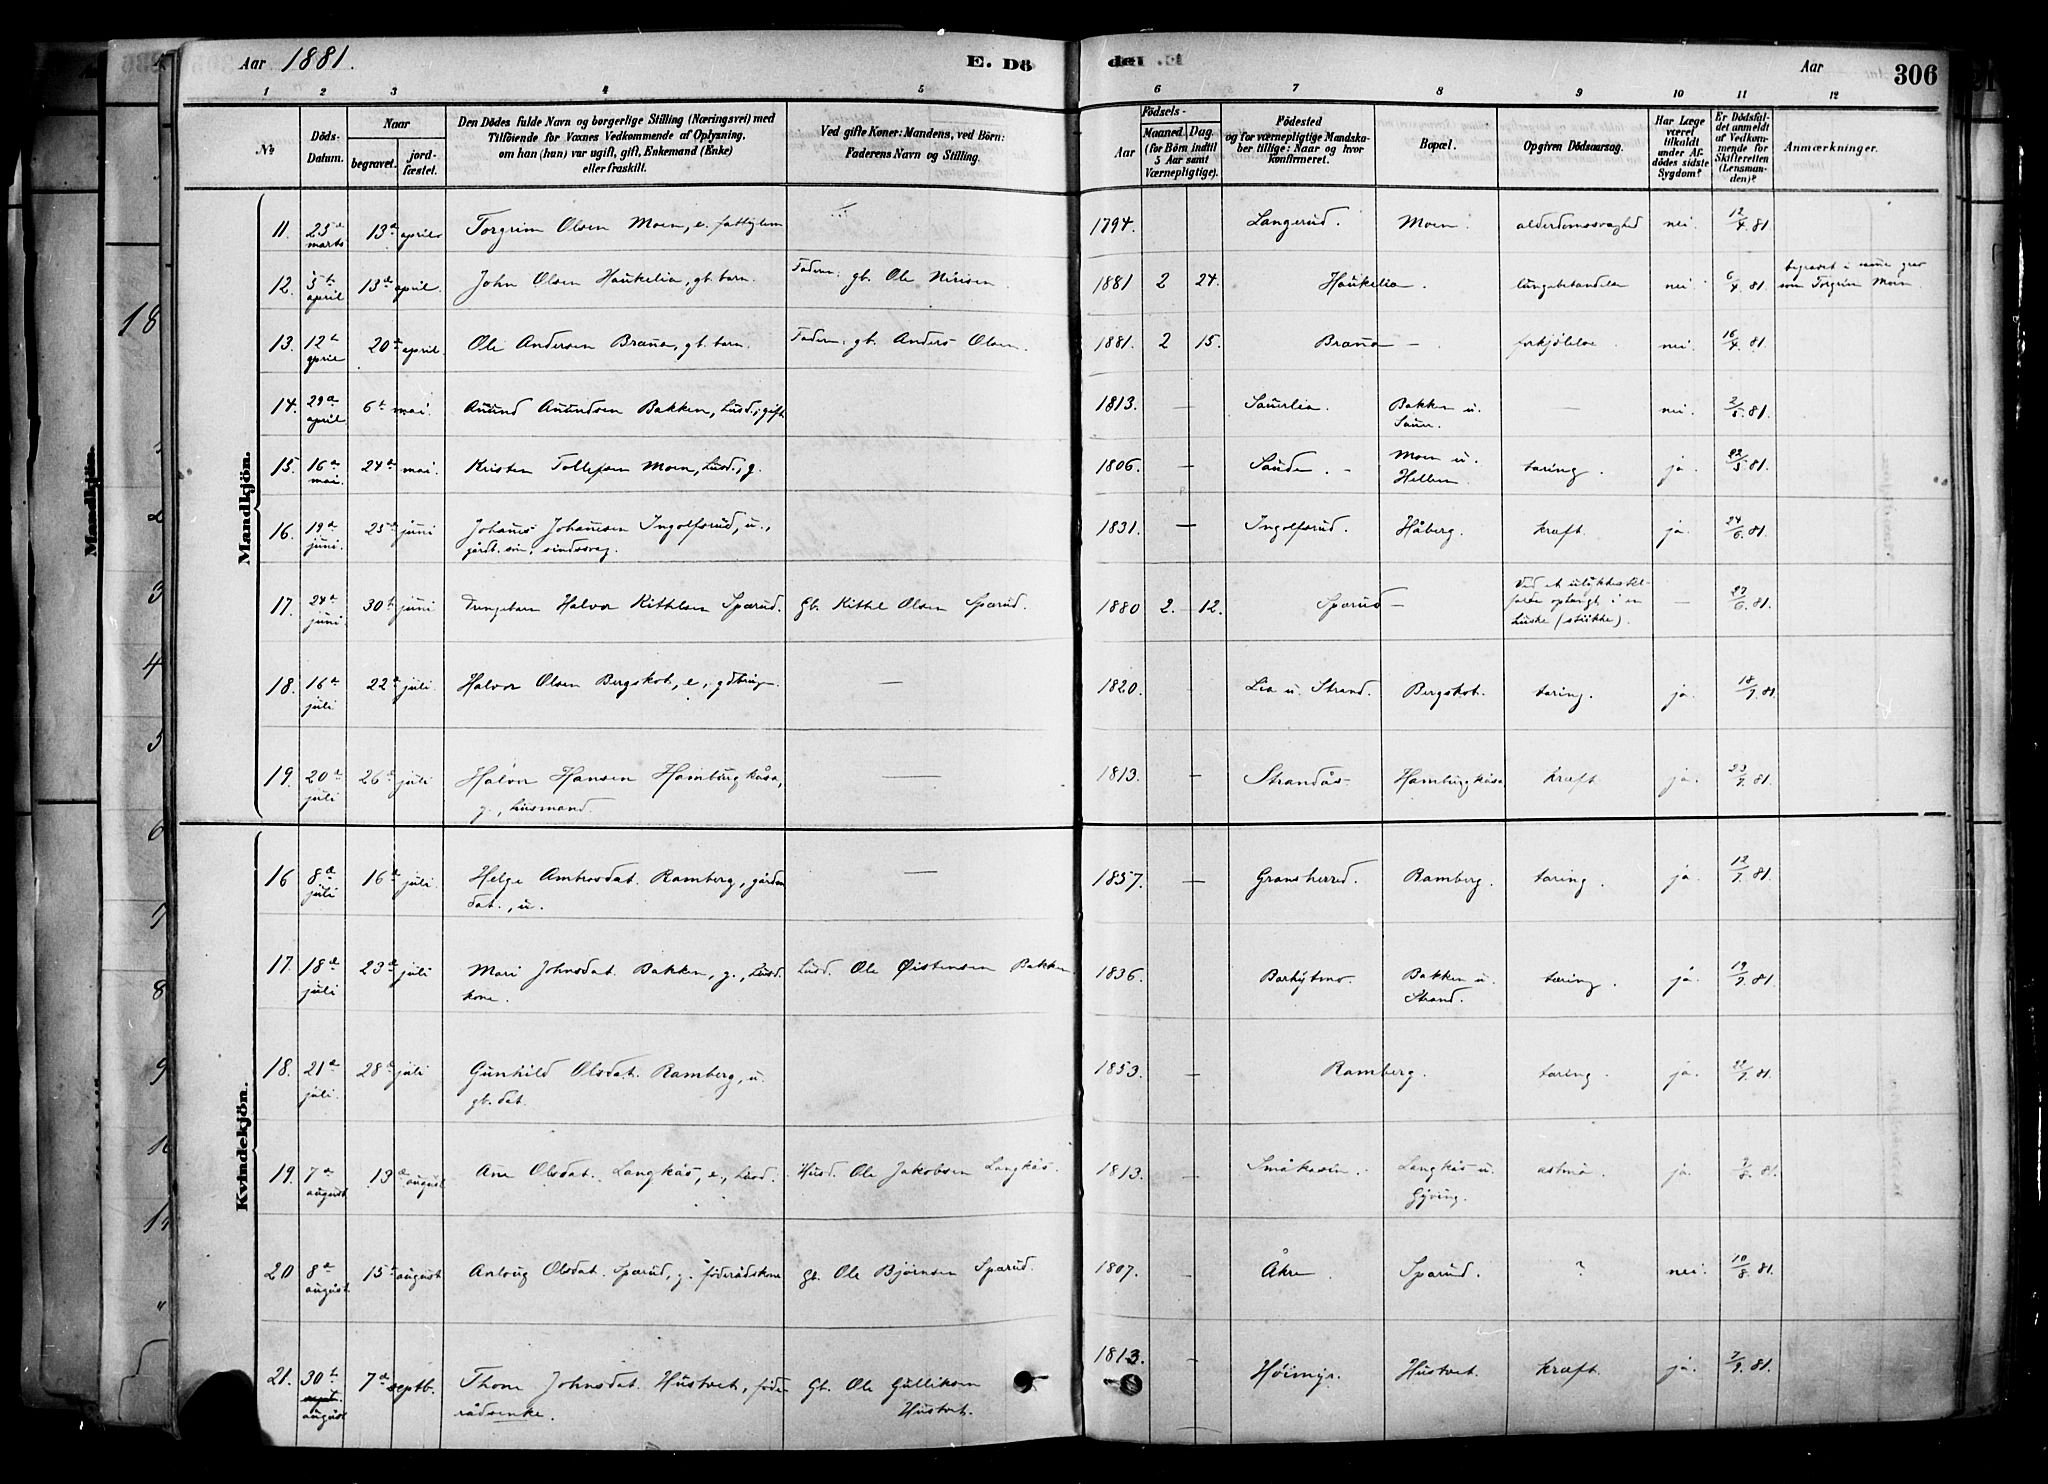 Aar 1881.
E. Dö
der E.
Aar
306
1 2 3 4 5 6 7 8 9 10 11 12
№
Döds-Datum.
Naar
begravet.
jord-fæstet.
Den Dödes fulde Navn og borgerlige Stilling (Næringsvei) med
Tilföiende for Voxnes Vedkommende af Oplysning,
om han (hun) var ugift, gift, Enkemand (Enke)
eller fraskilt.
Ved gifte Koner: Mandens, ved Börn:
Faderens Navn og Stilling.
Födsels-
Aar
Maaned Dag.
(for Börn indtil
5 Aar samt
Værnepligtige).
Födested
og for værnepligtige Mandska-
ber tillige: Naar og hvor
Konfirmeret.
Bopæl.
Opgiven Dödsaarsag.
Har Læge
været
tilkaldt
under Af-
dödes sidste
Sygdom?
Er Dödsfal-
det anmeldt
af Vedkom-
mende for
Skifteretten
(Lensman-
den)?
Anmærkninger.
Mandkjön.
11. 25de marts 13de april Torgrim Olsen Moen, e. fattiglem 1794. Langerud. Moen. alderdomssvaghed nei. 12/4 81.
12. 5te april 13de april. John Olsen Haukelia, gb. barn. Faderen: gb. Ole Nirisen. 1881 2 24. Haukelia. lungebetændelse nei. 6/4 81. begravet i samme grav
som Torgrim Moen.
13. 12te april 20de april. Ole Andersen Brauna, gb. barn. Faderen: gb. Anders Olsen. 1881. 2 15. Brauna — forkjölelse nei. 16/4 81.
14. 29de april 6te mai. Aunund Aunundsen Bakken, husd., gift 1813. — Sauerlia. Bakken u.
Sauer. — nei. 2/5 81.
15. 16de mai. 24de mai. Kristen Tollefsen Moen, husd., g. 1806. — Saude. — Moen u.
Hellen. tæring. ja. 22/5 81.
16. 19de juni. 25de juni Johannes Johannesen Ingolfsrud, u.,
gårdb. sön, sindssvag. 1831. — Ingolfsrud. Håberg. kræft. ja. 24/6 81.
17. 24de juni. 30te juni Drengebarn Halvor Kittilsen Sparud. Gb. Kittil Olsen Sparud. 1880 2. 12. Sparud — Ved et ulykkestil-
fælde ophængt i en
luske (stükke). — 27/6 81.
18. 16de juli 22de juli. Halvor Olsen Bergskot, e., gdbrug. — 1820. Lia u. Strand. Bergskot. tæring. ja. 18/7 81.
19. 20de juli 26de juli Halvor Hansen Hamburgkåsa,
g., husmand. — 1813. — Strandås. Hamburgkåsa kræft. ja. 23/7 81.
Kvindekjön.
16 8de juli 16de juli. Helge Ambrosdat. Ramberg, gårdm.
dat., u. — 1857. — Gransherred. Ramberg. tæring. ja. 12/7 81.
17. 18de juli 23de juli Mari Johnsdat. Bakken, g., husd.
kone. Husd. Ole Øistensen Bakken 1836. Bakken u.
Strand. tæring. ja. 19/7 81.
18. 21de juli. 28de juli Gunhild Olsdat. Ramberg, u.
gb. dat. 1853. — Ramberg. tæring. ja. 22/7 81.
19. 7de august 13de august Ane Olsdat. Langkås, e., husd. Husd. Ole Jakobsen Langkås. 1813. — Småkasin. Langkås u.
Gjving. astma ja. 9/8 81.
20 8de august. 15de august Aslaug Olsdat. Sparud, g. föderådskone Gb. Ole Bjørnsen Sparud. 1807. — Åkre. Sparud. ? nei. 10/8 81.
21. 30te august 7de septb. Thone Johnsdat. Hustvet, föde-
rådsenke. Gb. Ole Gulliksen
Hustvet. 1813. — Høimyr. Hustvet. kræft. ja. 2/9 81.
Mandkjön.
18
1
2
3
4
5
6
7
8
9
10
11